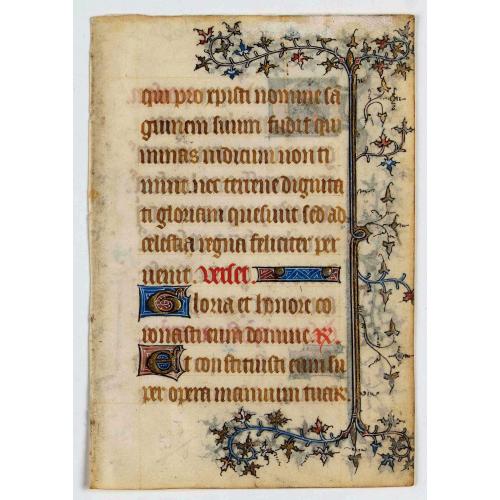 qui pro xpisti nomine sā
guinem suum fudit qui
minas iudicum non ti
muit. nec terrene dignita
ti gloriam quesiuit sed ad
celestia regna feliciter per
uenit. Verset
Gloria et honore co
ronasti eum domine. R.
Et constituisti eum su
per opera manuum tuar.